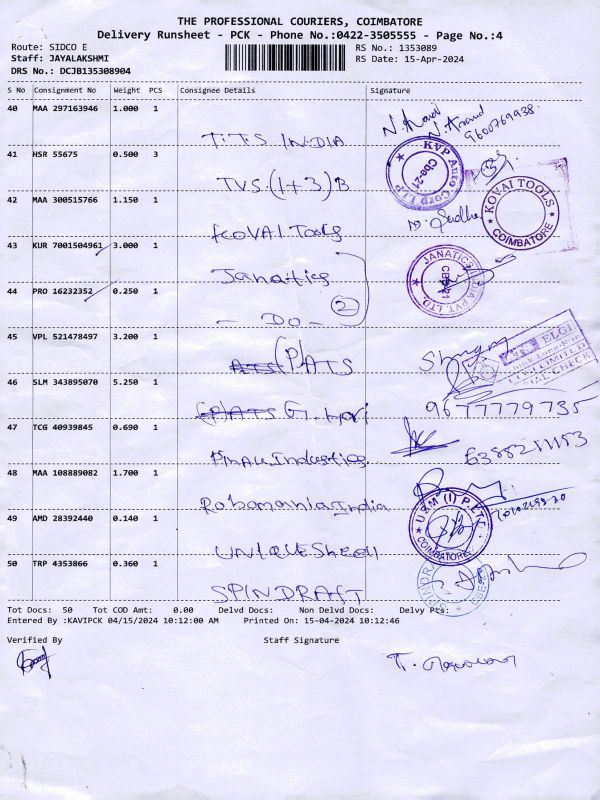 THE PROFESSIONAL COURIERS, COIMBATORE
Delivery Runsheet - PCK - Phone No.:0422-3505555 - Page No.:4
Route: SIDCO E RS No.: 1353089
Staff: JAYALAKSHMI RS Date: 15-Apr-2024
DRS No.: DCJB135308904
S No Consignment No Weight PCS Consignee Details Signature
40 MAA 297163946 1.000 1
N. Anand
N. Anand
9600769938
T.T.S. INDIA
41 HSR 55675 0.500 3
KVP Auto Corp LLP
Cbe-21
TVS (1+3) B
KOVAI TOOLS
COIMBATORE
42 MAA 300515766 1.150 1
KOVAI Tools
43 KUR 7001504961 3.000 1
Janatics
44 PRO 16232352 0.250 1
2
- DO -
45 VPL 521478497 3.200 1
ELGI
(P) ATS
46 SLM 343895070 5.250 1
9677779735
G. Hari
47 TCG 40939845 0.690 1
6388211153
Industries
48 MAA 108889082 1.700 1
Robomania India
U&M (I) P. LTD
COIMBATORE
49 AMD 28392440 0.140 1
50 TRP 4353866 0.360 1
SPINDRAFT
Tot Docs: 50 Tot COD Amt: 0.00 Delvd Docs: Non Delvd Docs: Delvy Pts:
Entered By :KAVIPCK 04/15/2024 10:12:00 AM Printed On: 15-04-2024 10:12:46
Verified By Staff Signature